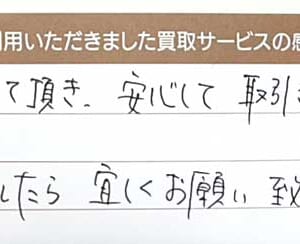 用いただきました買取サービスの感
て頂き、安心して 取引
したら 宜しくお願い 致